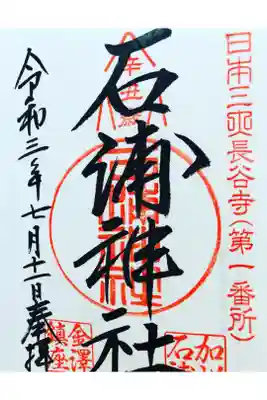 日本三所長谷寺(第一番所)
辛丑歳
石浦神社
令和三年七月十一日奉拝
加
石
金澤
鎮座